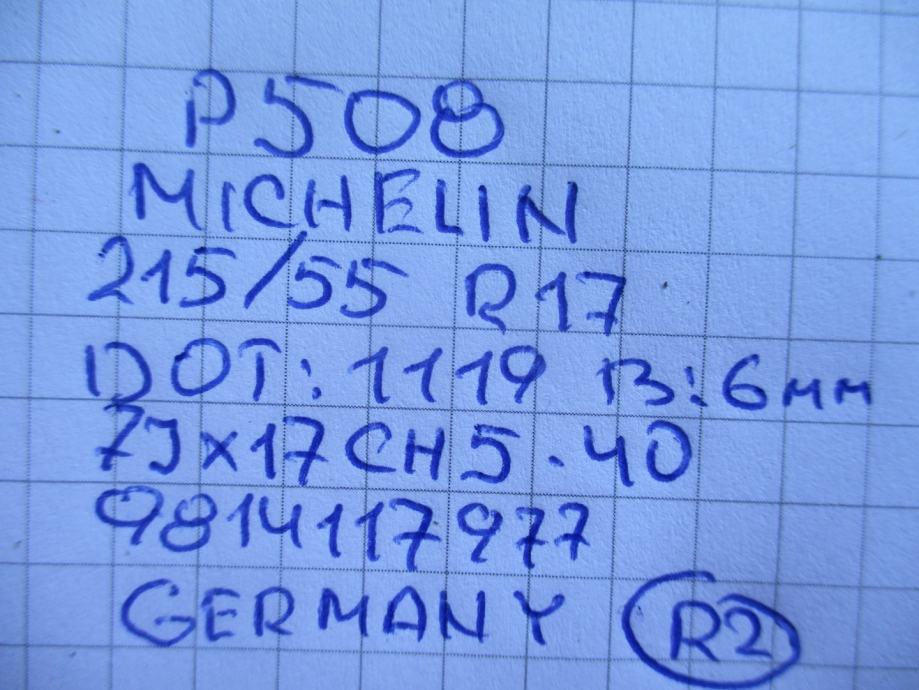 P508
MICHELIN
215/55 R17
DOT: 1119 B: 6мм
7J x 17 CH 5.40
9814117977
GERMANY R2